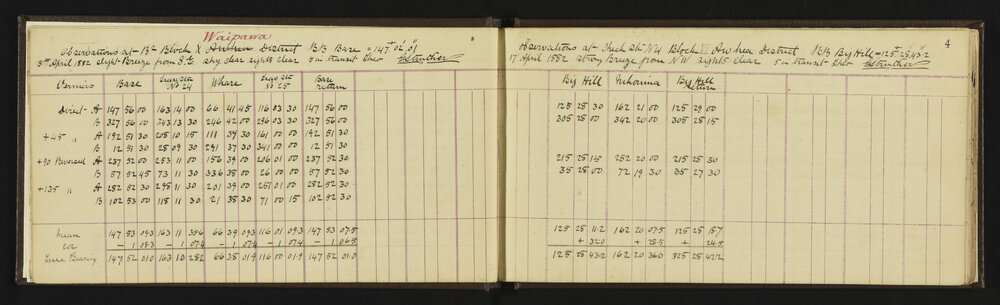 Waipawa
Observations at Bk Block X Awhea District BB Base = 147° 02' 01"
8th April 1882 slight Breeze from sky clear sights clear 5 in transit theo
Vernier Base Trig Stn No 24 Whare Trig Stn No 25 Base Return
Direct A 147 56 00 163 14 00 66 41 45 116 03 30 147 56 00
B 327 56 00 343 13 30 246 42 00 296 03 30 327 56 00
+45 " A 192 51 30 208 10 15 111 37 30 161 00 00 192 51 30
B 12 51 30 28 09 30 291 37 30 341 00 00 12 51 30
+90 Reversed A 237 52 00 253 11 00 156 39 00 206 01 00 237 52 30
B 57 52 45 73 11 30 336 38 00 26 00 00 57 52 30
+135 " A 282 52 30 298 11 30 201 39 00 251 01 00 282 52 30
B 102 53 00 118 11 30 21 38 30 71 00 15 102 52 30
Mean 147 53 09.3 163 11 35.6 66 39 09.3 116 01 09.3 147 53 07.5
Cor — 1 08.3 — 1 07.4 — 1 07.4 — 1 07.4 — 1 06.5
True Bearing 147 52 01.0 163 10 28.2 66 38 01.9 116 00 01.9 147 52 01.0
4
Observations at Check Stn No 4 Block VI Awhea District BB Big Hill = 125° 25' 43".2
17 April 1882 strong Breeze from NW sights clear 5 in transit theo
Big Hill Mohorima Big Hill Return
125 25 30 162 21 00 125 29 00
305 25 00 342 20 00 305 28 15
215 25 15 252 20 00 215 25 30
35 25 00 72 19 30 35 27 30
125 25 11.2 162 20 07.5 125 25 18.7
+ 32.0 + 28.5 + 24.5
125 25 43.2 162 20 36.0 325 25 42.2